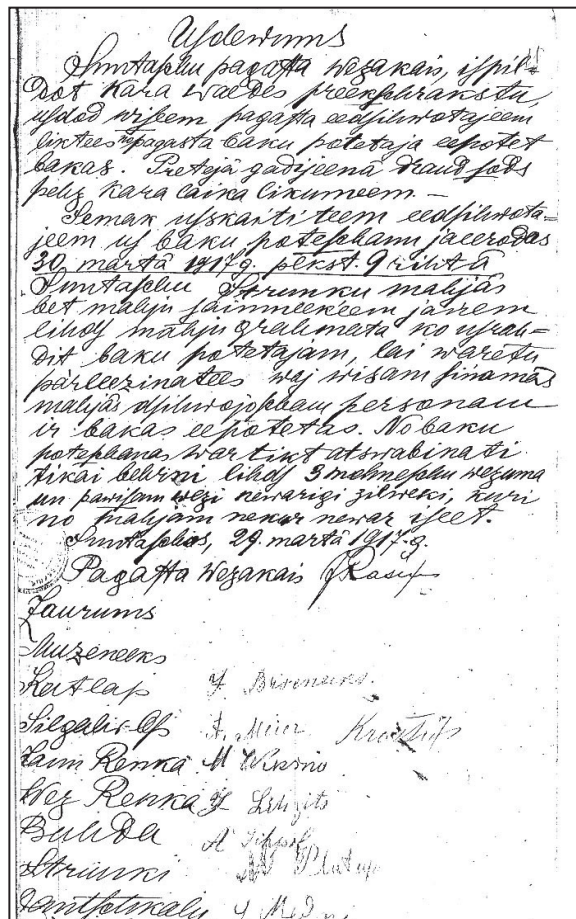 Usdewums
Suntaschu pagasta Wezakais, ispil-
dot Kara Waldes preekschrakstu,
usdod wisem pagasta eedsihwotajeem
liktees no pagasta baku potetaja eepotet
bakas. Pretejā gadijeenā draud sods
pehz Kara laika likumeem. —
Semak uskaititeem eedsihwota-
jeem us baku poteschanu jaeerodas
30 martā 1917g. pekst. 9 rihtā
Suntaschu Strunku mahjās
bet mahju saimneekeem jaņem
lihds mahju grahmata ko usrah-
dit baku potetajam, lai waretu
pārleezinatees waj wisam sinamās
mahjās dsihwojoscham personam
ir bakas eepotetas. No baku
poteschanas war tikt atswabinati
tikai behrni lihds 3 mehneschu wezuma
un pawisam wezi newarigi zilweki, kuri
no mahjam nekur newar iseet.
Suntaschos, 29. martā 1917.g.
Pagasta Wezakais
Zaurums
Muzeneeks
Keitlap
Silgalis
Jaun Renka
Wez Renka
Buhda
Strunki